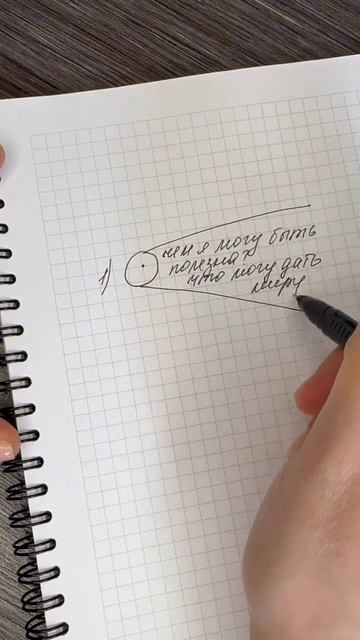 1)
чем я могу быть
полезна?
что могу дать
миру